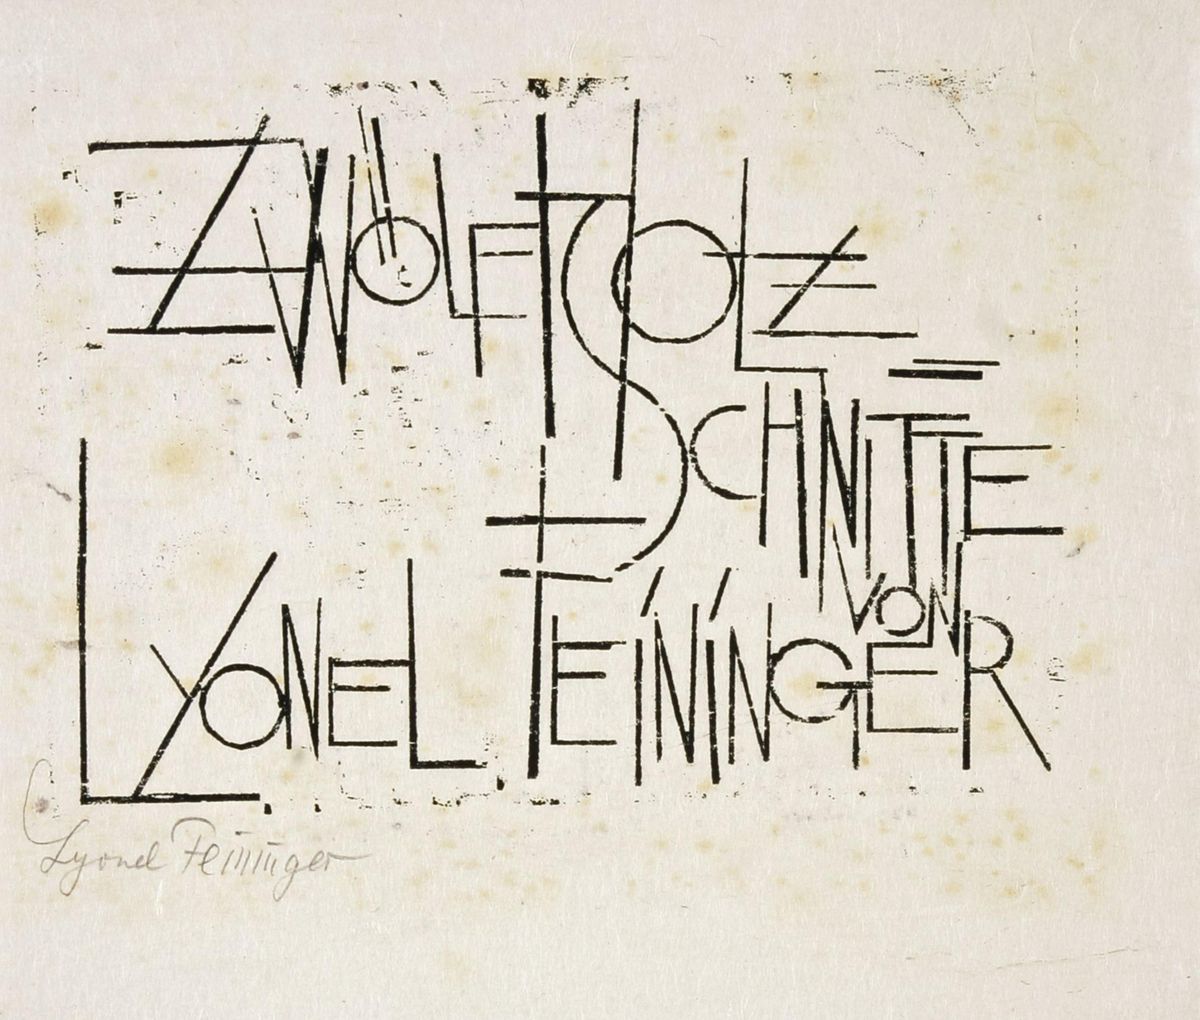 ZWÖLF HOLZ=
SCHNITTE
VON
LYONEL FEININGER
Lyonel Feininger